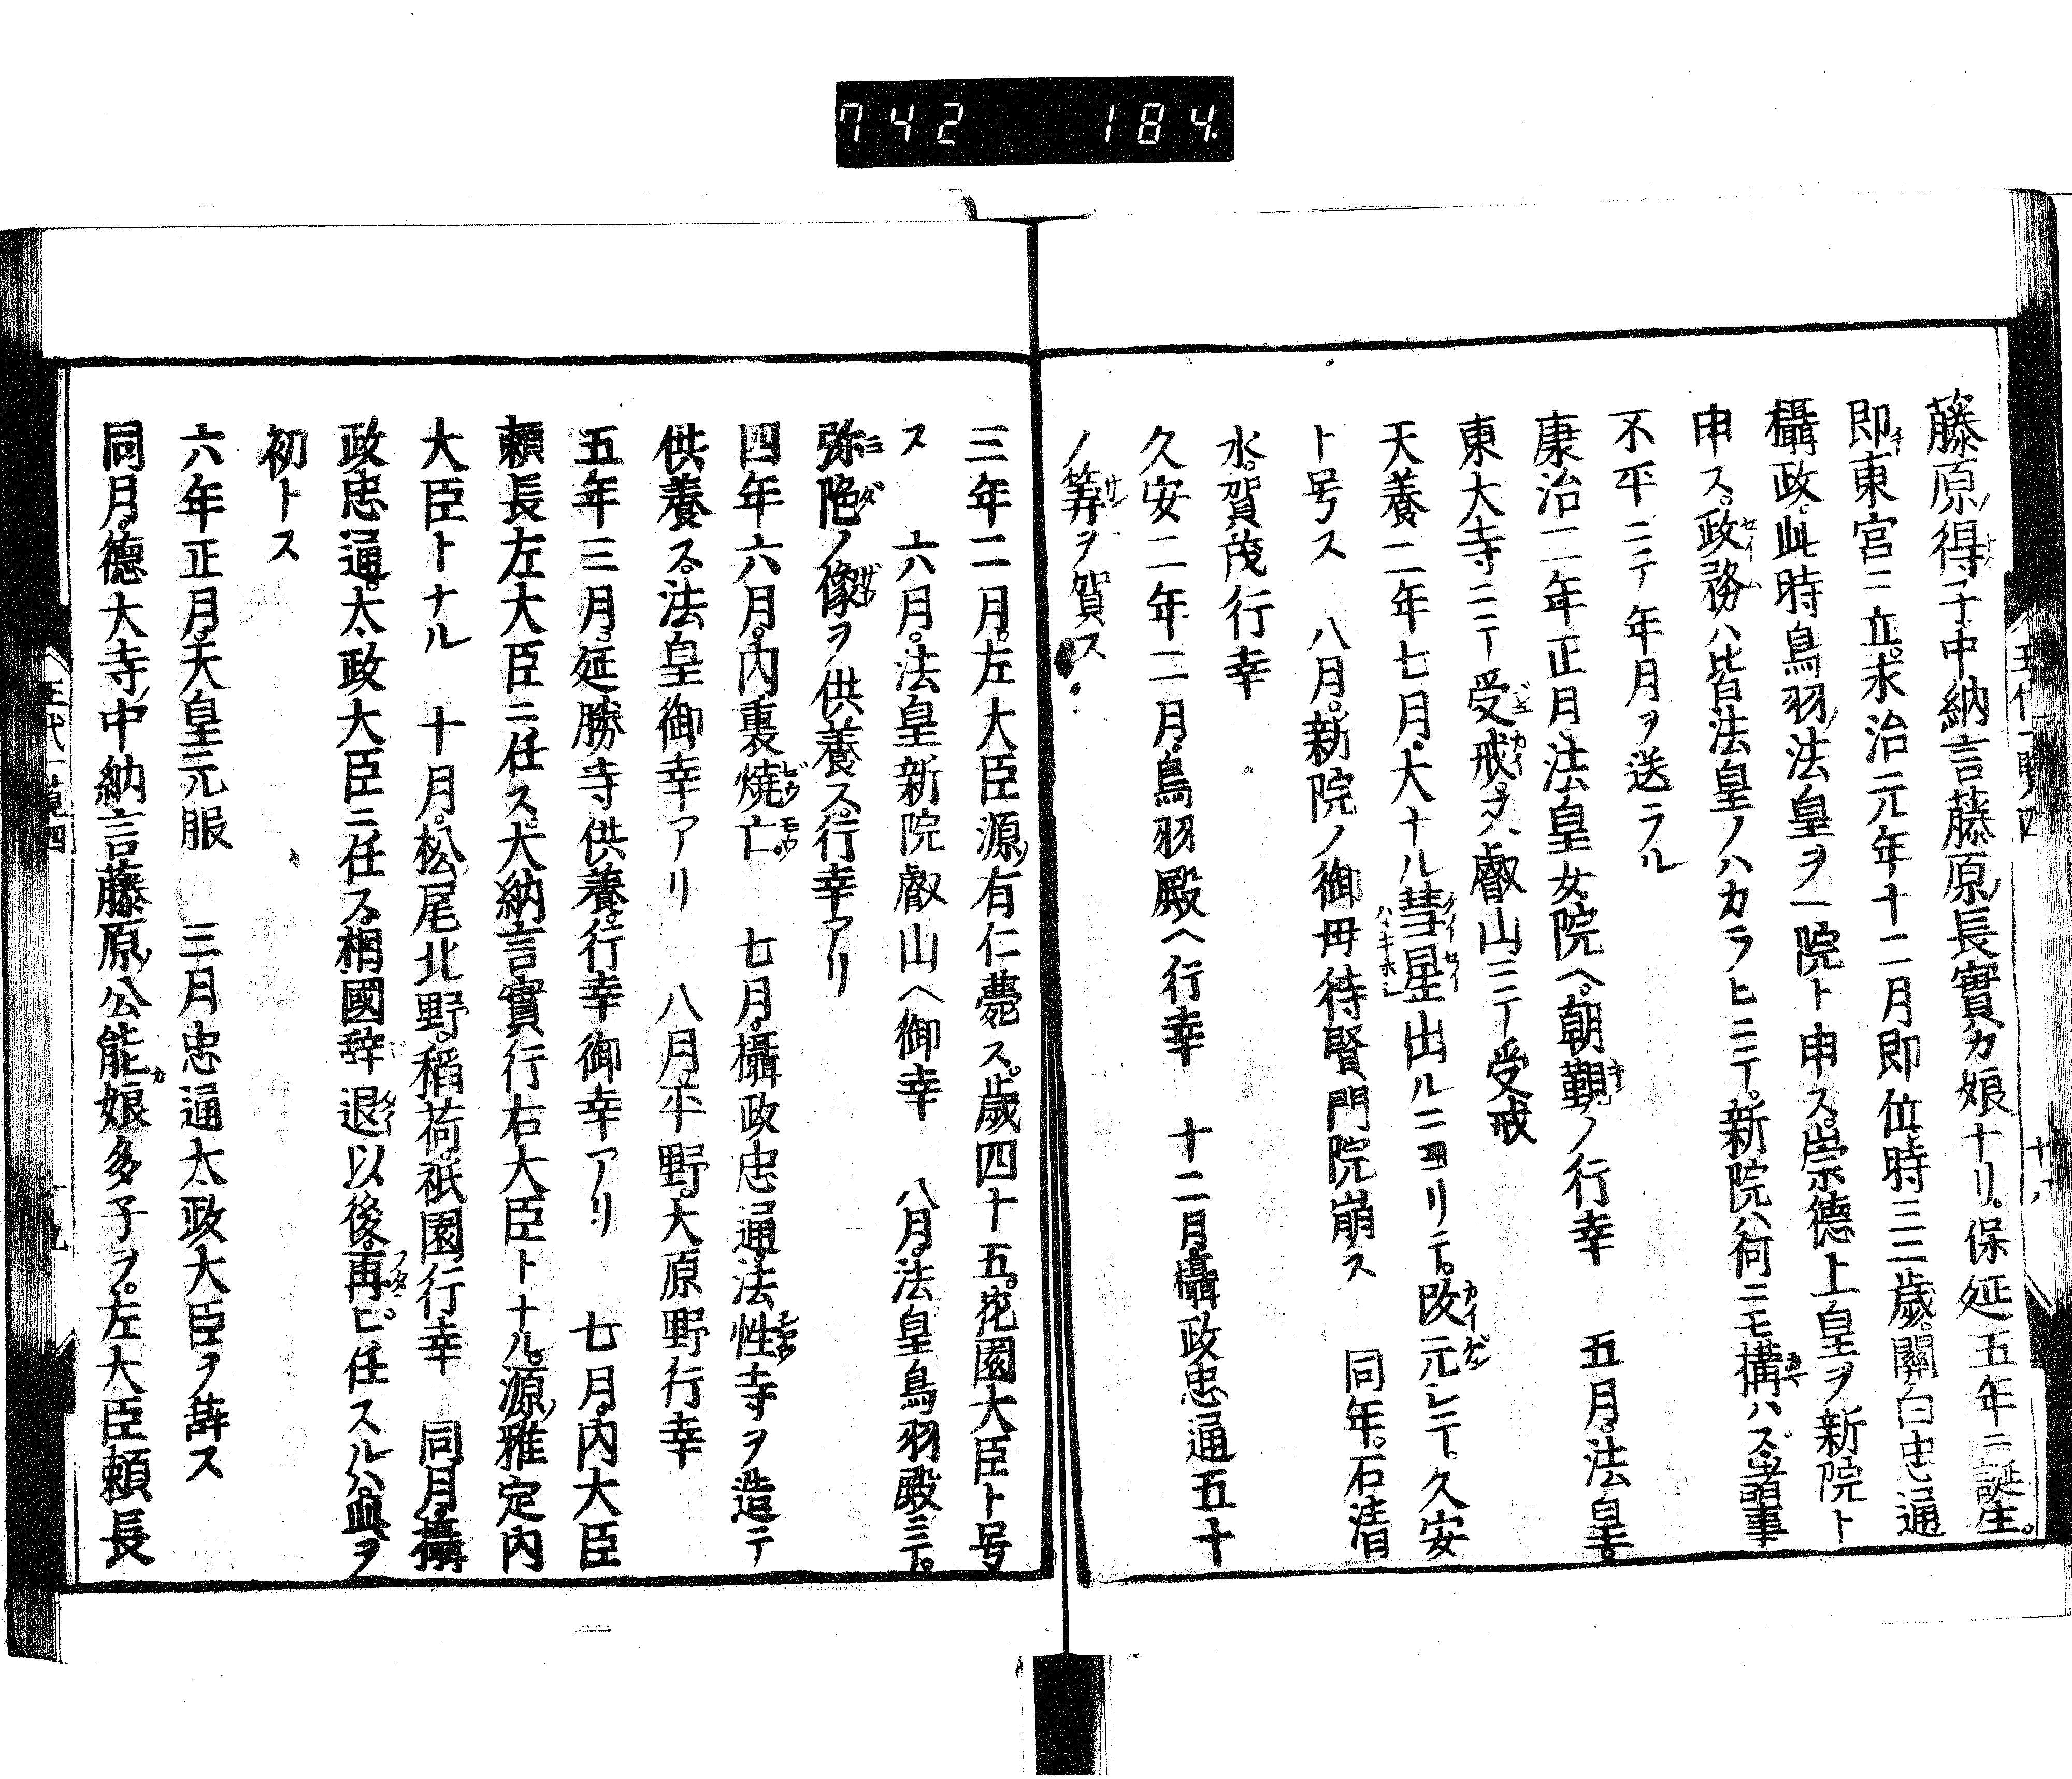 742 184
藤原ノ得子中納言藤原ノ長實カ娘ナリ。保延五年ニ誕生。
即東宮ニ立。永治元年十二月即位時ニ三歲。關白忠通
攝政。此時鳥羽ノ法皇ヲ一院ト申ス。崇德上皇ヲ新院ト
申ス。政務ハ皆法皇ノハカラヒニテ。新院ハ何ニモ構ハズ。諸事
不平ニテ年月ヲ送ラル
康治二年正月。法皇女院ヘ。朝覲ノ行幸　五月。法皇。
東大寺ニテ受戒。又叡山ニテ受戒
天養二年七月。大ナル彗星出ルニヨリテ。改元シテ。久安
ト号ス　八月。新院ノ御母待賢門院崩ス　同年。石清
水。賀茂行幸
久安二年二月。鳥羽殿ヘ行幸　十二月。攝政忠通五十
ノ筭ヲ賀ス
三年二月。左大臣源ノ有仁薨ス。歲四十五。花園大臣ト号
ス　六月。法皇新院叡山ヘ御幸　八月。法皇鳥羽殿ニテ。
弥陀ノ像ヲ供養ス。行幸アリ
四年六月。內裏燒亡　七月。攝政忠通。法性寺ヲ造テ
供養ス。法皇御幸アリ　八月。平野。大原野行幸
五年三月。延勝寺供養。行幸御幸アリ　七月。內大臣
賴長左大臣ニ任ス。大納言實行右大臣トナル。源ノ雅定內
大臣トナル　十月。松尾北野。稻荷。祇園行幸　同月。攝
政忠通。太政大臣ニ任ス。相國辞退以後。再ビ任スルハ。此ヲ
初トス
六年正月。天皇元服　三月忠通太政大臣ヲ辞ス
同月。德大寺ノ中納言藤原ノ公能カ娘多子ヲ。左大臣賴長
王代一覽四